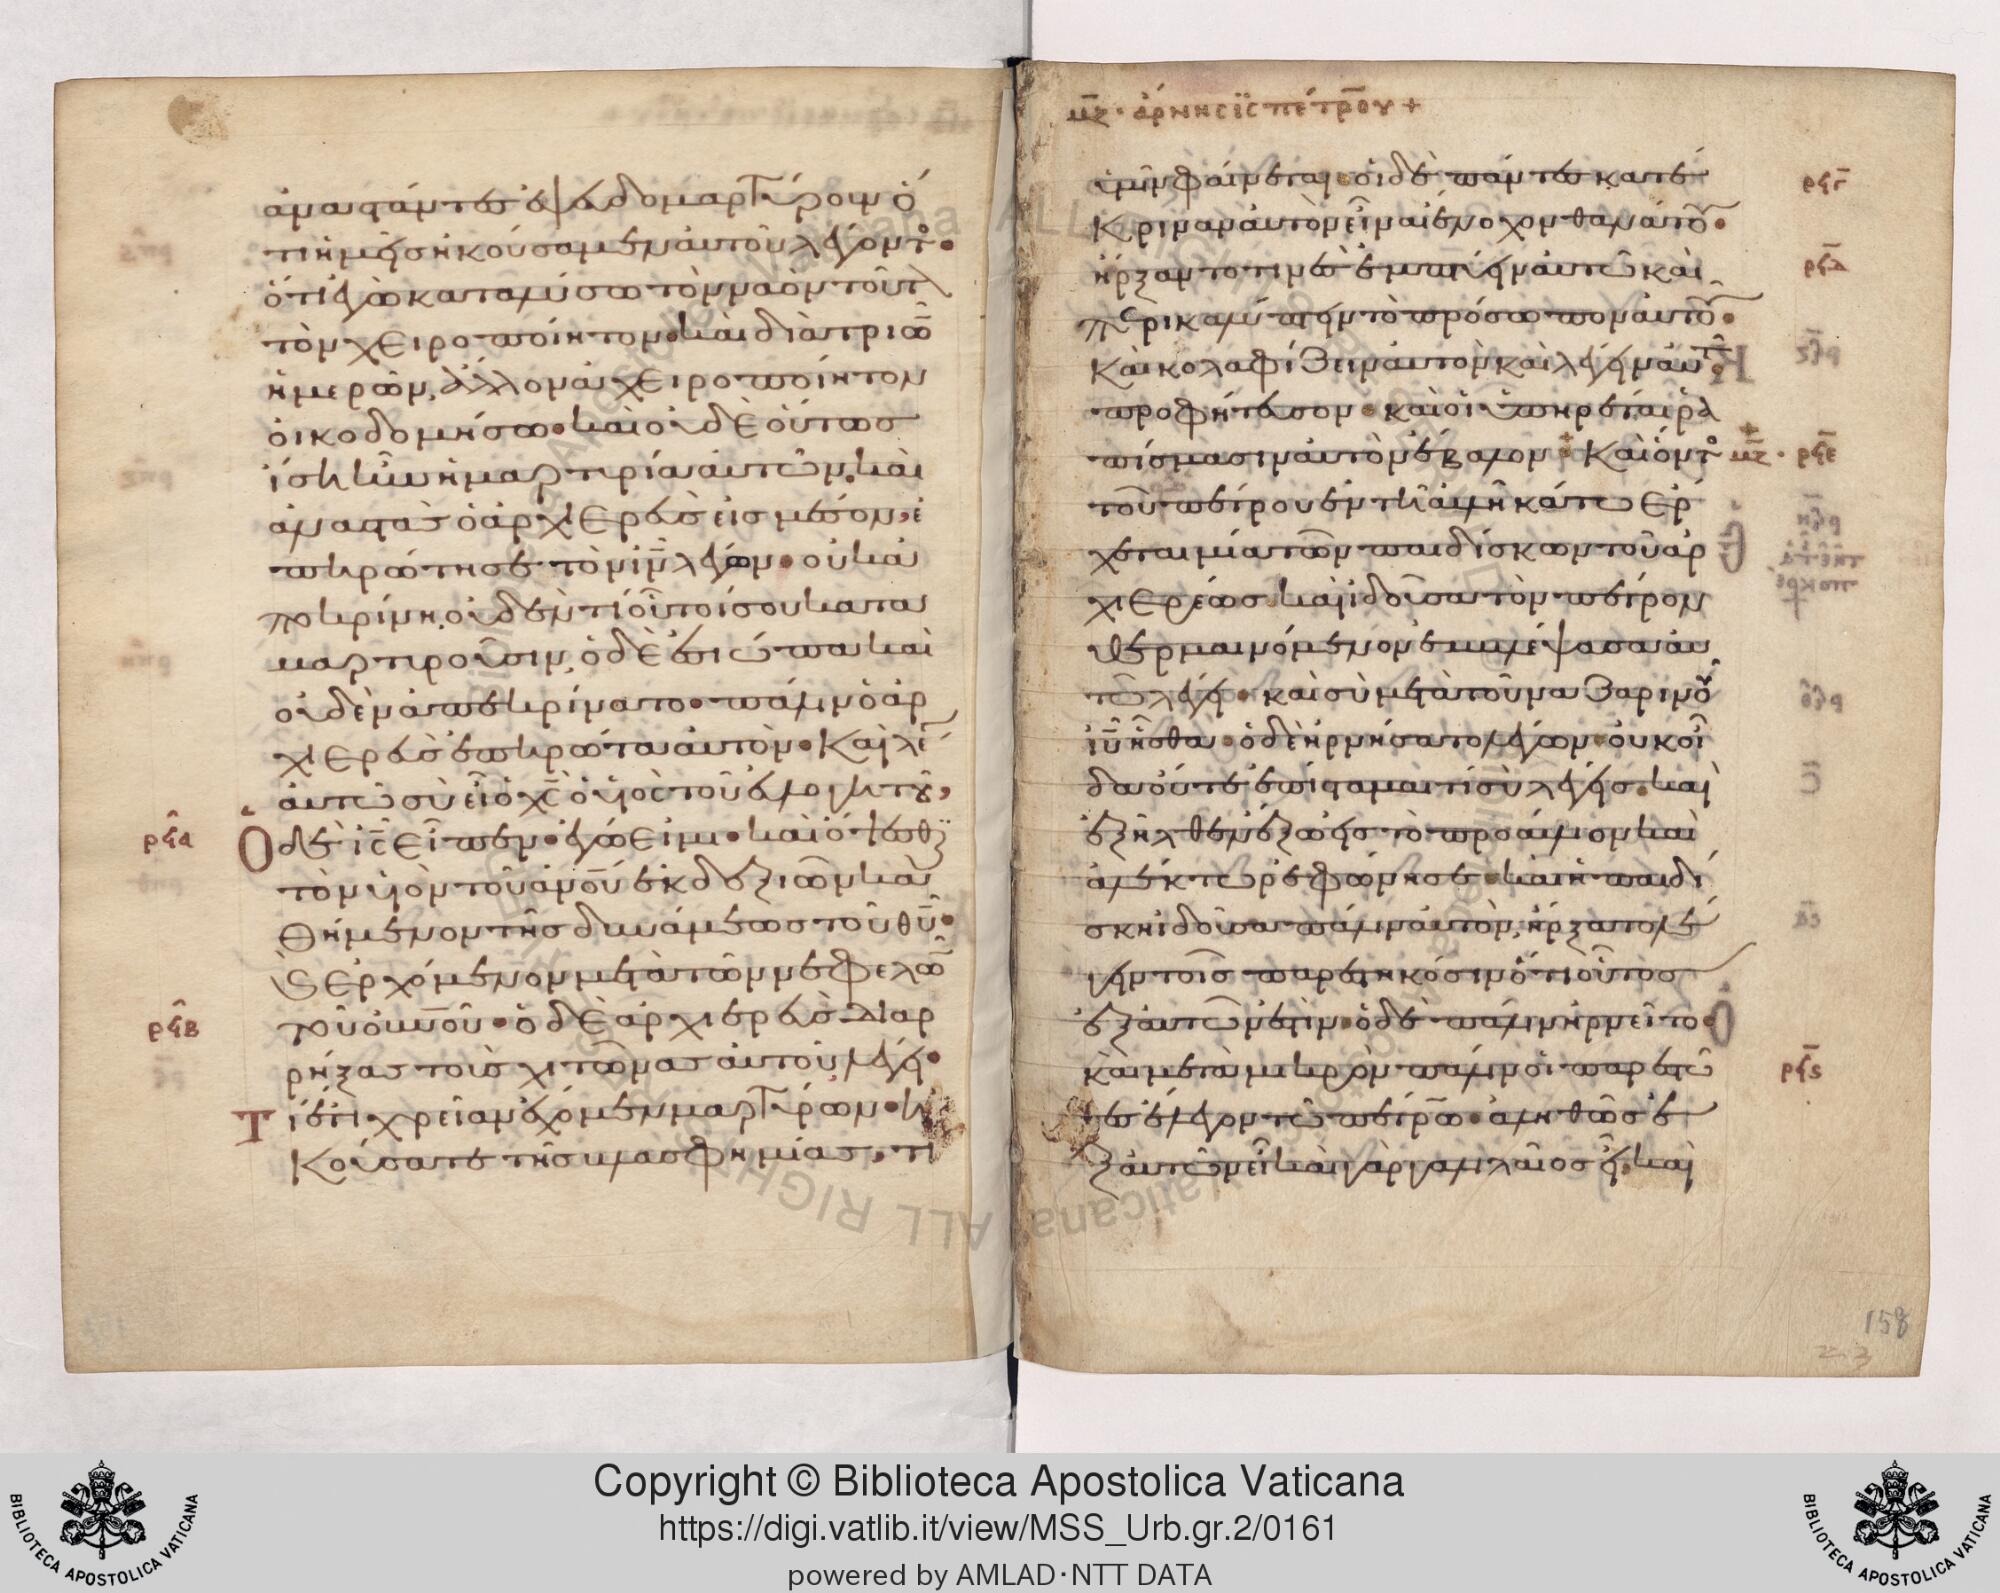 ἀναστάντες ἐψευδομαρτύρουν
ὅτι ἡμεῖς ἠκούσαμεν αὐτοῦ λέγοντο
ὅτι ἐγὼ καταλύσω τὸν ναὸν τοῦτ
τὸν χειροποίητον· καὶ διὰ τριῶ
ἡμερῶν, ἄλλον ἀχειροποίητον
οἰκοδομήσω· καὶ οὐδὲ οὕτως
ἴση ἦν ἡ μαρτυρία αὐτῶν, καὶ
ἀναστὰς ὁ ἀρχιερεὺς εἰς μέσον, ἐ
πηρώτησε τὸν ιν λέγων· οὐκ ἀ
ποκρίνη οὐδὲν τί οὗτοί σου κατα
μαρτυροῦσιν, ὁ δὲ ἐσιώπα καὶ
οὐδὲν ἀπεκρίνατο· πάλιν ὁ ἀρ
χιερεὺς ἐπηρώτα αὐτὸν· καὶ λέ
αὐτῶ σὺ εἶ ὁ χς ὁ υἱὸς τοῦ εὐλογητοῦ,
ρϟα Ὁ δὲ ις εἶπεν· ἐγώ εἰμι· καὶ ὄψεσθε
τὸν υἱὸν τοῦ ανου ἐκ δεξιῶν κα
θήμενον τῆς δυνάμεως τοῦ θυ·
καὶ ἐρχόμενον μετὰ τῶν νεφελῶ
ρϟβ τοῦ ουνου· ὁ δὲ ἀρχιερεὺς διαρ
ρήξας τοὺς χιτῶνας αὐτοῦ λέγει·
Τί ἔτι χρείαν ἔχομεν μαρτύρων· ἠ
κούσατε τῆς βλασφημίας, τί
μζ· ἄρνησις πέτρου +
ὑμῖν φαίνεται· οἱ δὲ πάντες κατέ ρϟγ
κριναν αὐτὸν εἶναι ἔνοχον θανάτου·
ἤρξαντό τινες ἐμπτύειν αὐτῶ καὶ ρϟδ
περικαλύπτειν τὸ πρόσωπον αὐτοῦ·
καὶ κολαφίζειν αὐτὸν καὶ λέγειν αὐτῶ·
προφήτευσον· καὶ οἱ ὑπηρέται ῥα
πίσμασιν αὐτὸν ἔβαλον + Καὶ ὄντο μζ· ρϟε
τοῦ πέτρου ἐν τῆ αὐλῆ κάτω ἔρ
χεται μία τῶν παιδισκῶν τοῦ ἀρ
χιερέως καὶ ἰδοῦσα τὸν πέτρον
θερμαινόμενον ἐμβλέψασα αὐ
τῶ λέγει· καὶ σὺ μετὰ τοῦ ναζαρινοῦ
ιυ ἦσθα· ὁ δὲ ἠρνήσατο λέγων· οὐκ οἶ
δα οὔτε ἐπίσταμαι τί σὺ λέγεις. καὶ
ἐξῆλθεν ἔξω εἰς τὸ προαύλιον καὶ
ἀλέκτωρ ἐφώνησε· καὶ ἡ παιδί
σκη ἰδοῦσα πάλιν αὐτὸν, ἤρξατο λέ
γειν τοῖς παρεστηκόσιν ὅτι οὗτος
ἐξ αὐτῶν ἐστιν· ὁ δὲ πάλιν ἠρνεῖτο·
καὶ μετὰ μικρὸν πάλιν οἱ παρεστῶ ρϟϛ
τες ἔλεγον τῶ πέτρω· ἀληθῶς ἐ
ξ αὐτῶν εἶ καὶ γὰρ γαλιλαῖος εἶ, καὶ
158
Copyright © Biblioteca Apostolica Vaticana
https://digi.vatlib.it/view/MSS_Urb.gr.2/0161
powered by AMLAD·NTT DATA
BIBLIOTECA APOSTOLICA VATICANA
BIBLIOTECA APOSTOLICA VATICANA